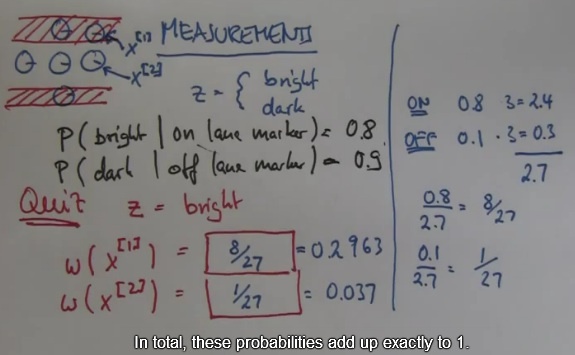 x[1] MEASUREMENT
x[2]
z = { bright
dark
P( bright | on lane marker) = 0.8
P( dark | off lane marker) = 0.9
QUIZ z = bright
w(x[1]) = 8/27 = 0.2963
w(x[2]) = 1/27 = 0.037
ON 0.8 · 3 = 2.4
OFF 0.1 · 3 = 0.3
2.7
0.8/2.7 = 8/27
0.1/2.7 = 1/27
In total, these probabilities add up exactly to 1.